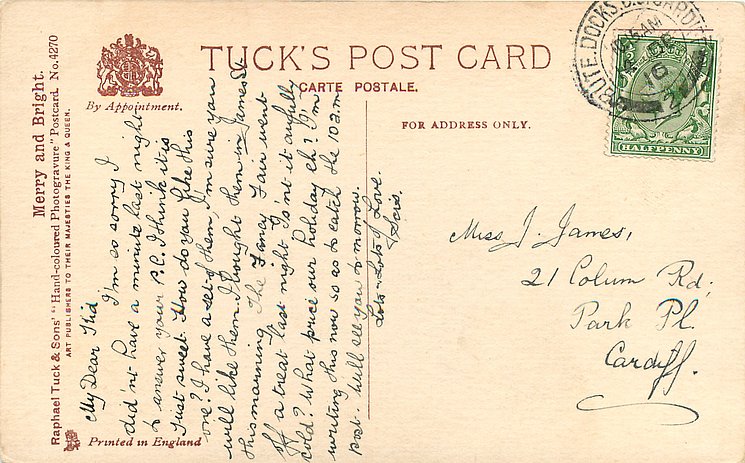 TUCK'S POST CARD
CARTE POSTALE.
By Appointment.
FOR ADDRESS ONLY.
Merry and Bright.
Raphael Tuck & Sons' "Hand-coloured Photogravure" Postcard No. 4270
ART PUBLISHERS TO THEIR MAJESTIES THE KING & QUEEN.
Printed in England
My Dear Kid
I'm so sorry I
did n't have a minute last night
to answer your P.C. I think it is
just sweet. How do you like this
one? I have a set of them, I'm sure you
will like them. I bought them in James St
this morning. The Fancy Fair went
off a treat last night. Is'nt it awfully
cold? What price our holiday eh? I'm
writing this now so as to catch the 10 a.m
post. Will see you to-morrow.
Lots & Lots of Love.
Miss J. James,
21 Colum Rd,
Park Pl.
Cardiff.
BUTE DOCKS, CARDIFF
AM
16
HALFPENNY